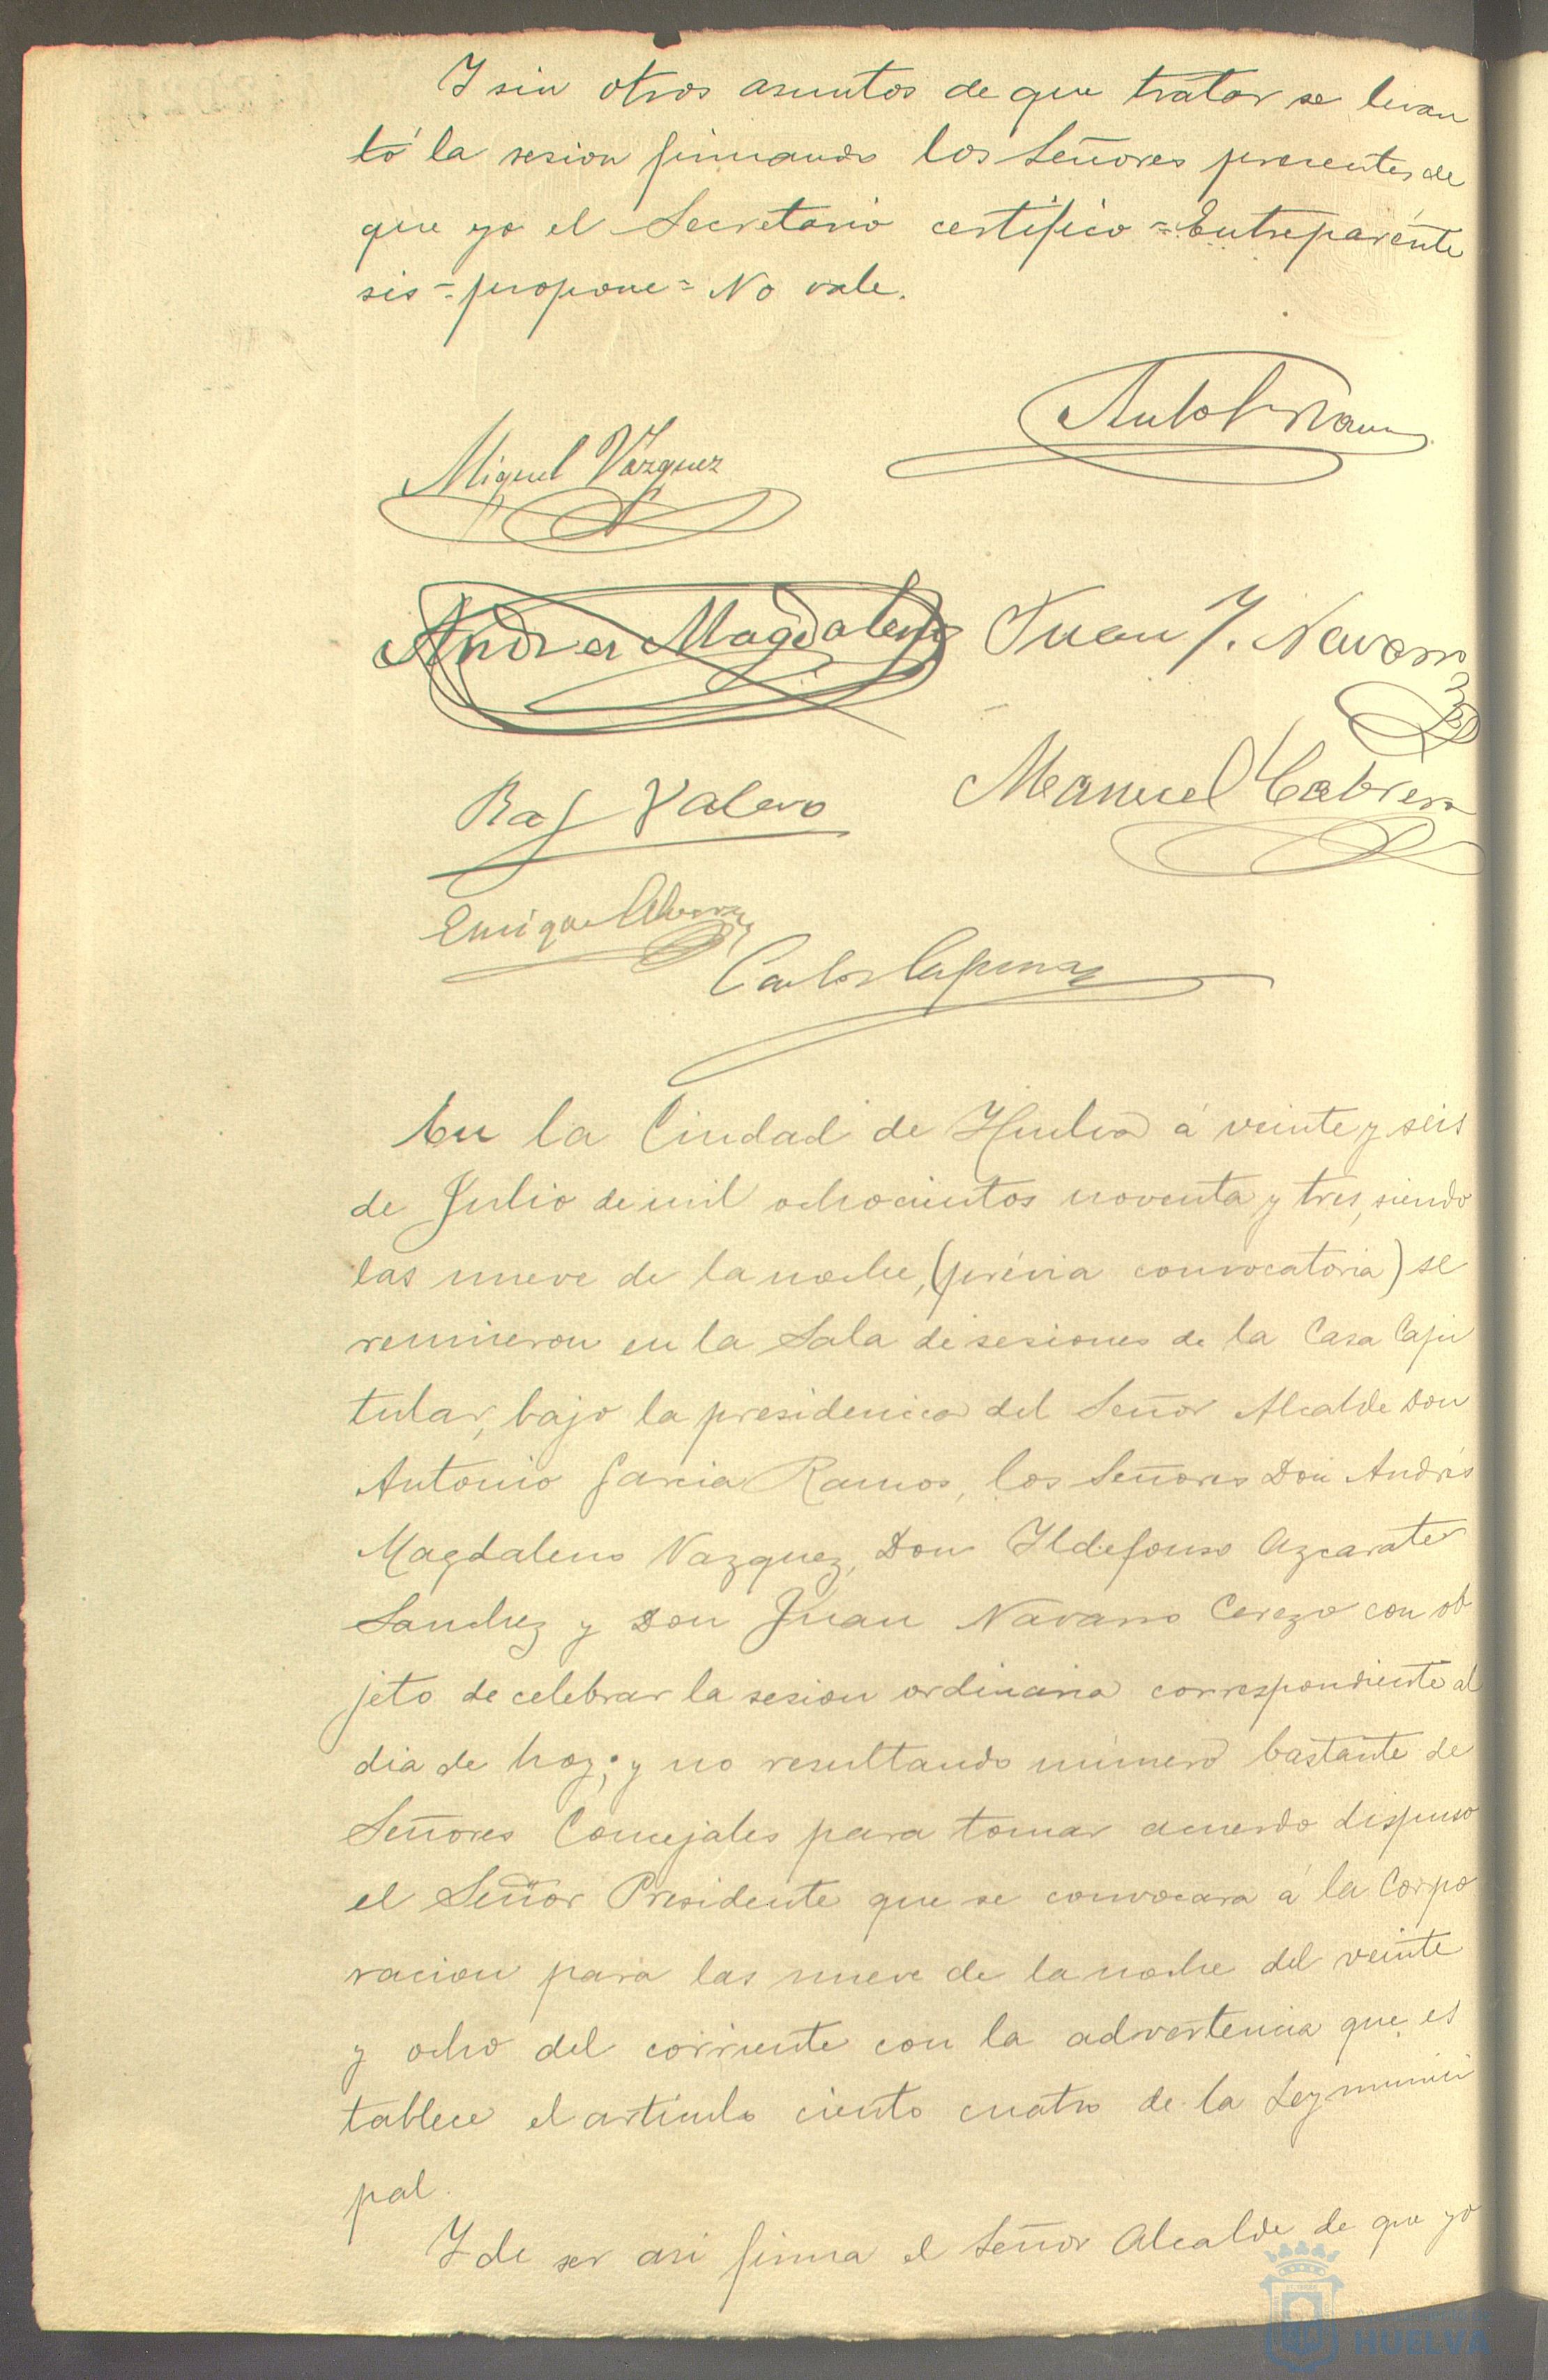 Y sin otros asuntos de que tratar se levan
tó la sesion firmando los Señores presentes de
que yo el Secretario certifico = Entreparénte
sis = propone = No vale.
Miguel Vázquez
Andres Magdaleno Juan J. Navarro
Raf Valero Manuel Cabrera
Enrique
Carlos
En la Ciudad de Huelva á veinte y seis
de Julio de mil ochocientos noventa y tres, siendo
las nueve de la noche, (prévia convocatoria) se
reunieron en la Sala de sesiones de la Casa Capi
tular, bajo la presidencia del Señor Alcalde Don
Antonio Garcia Ramos, los Señores Don Andrés
Magdaleno Vazquez, Don Ildefonso Azcarate
Sanchez y Don Juan Navarro Cerezo con ob
jeto de celebrar la sesion ordinaria correspondiente al
dia de hoy; y no resultando número bastante de
Señores Concejales para tomar acuerdo dispuso
el Señor Presidente que se convocara á la Corpo
racion para las nueve de la noche del veinte
y ocho del corriente con la advertencia que es
tablece el artículo ciento cuatro de la Ley munici
pal.
Y de ser asi firma el Señor Alcalde de que yo
HUELVA